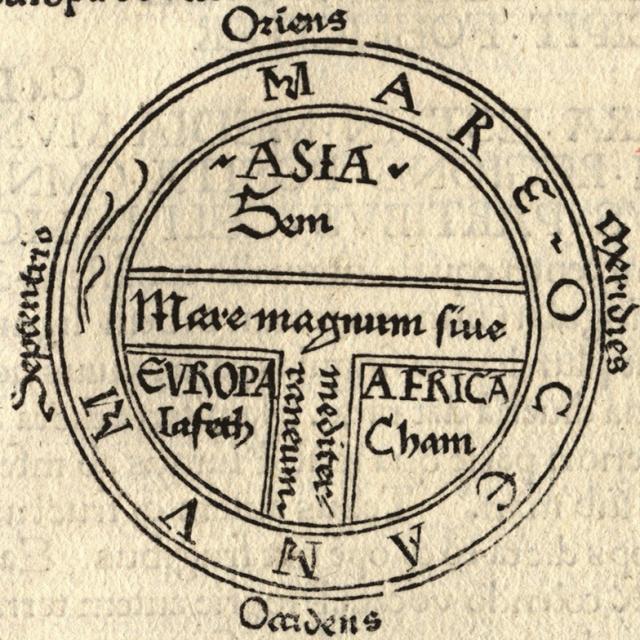 Oriens
MARE OCEANVM
ASIA
Sem
Septentrio
Meridies
Mare magnum siue
EVROPA
Iafeth
mediter/
raneum.
AFRICA
Cham
Occidens